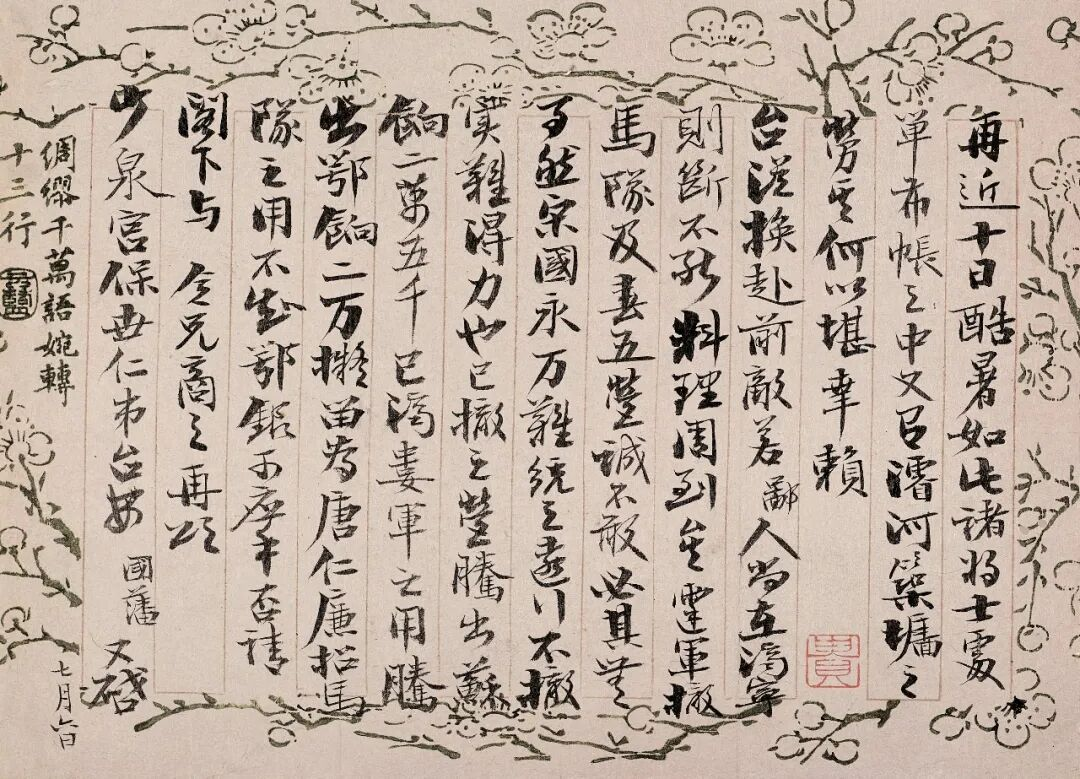 再近十日酷暑如此諸將士處
單布帳之中又以濬河築墻之
勞其何以堪幸賴
台從換赴前敵若鄙人尚在濟寧
則斷不能料理周到至霆軍撤
馬隊及春五營誠不敢必其無
事然宋國永万難統之遠行不撤
實難得力也已撤之營騰出蘇
餉二萬五千已滿婁軍之用騰
出鄂餉二万擬留為唐仁廉招馬
隊之用不知鄂銀可應手否請
閣下与 令兄商之再頌
少泉宮保世仁弟台安 國藩 又啓
七月六日
綢繆千萬語婉轉
十三行